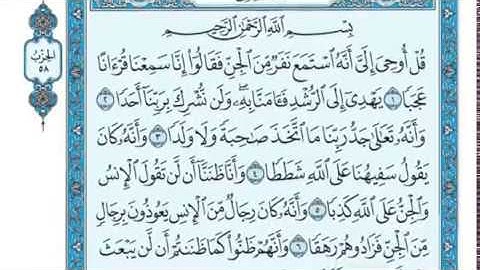 بِسْمِ اللَّهِ الرَّحْمَٰنِ الرَّحِيمِ
قُلْ أُوحِىَ إِلَىَّ أَنَّهُ ٱسْتَمَعَ نَفَرٌ مِّنَ ٱلْجِنِّ فَقَالُوٓا۟ إِنَّا سَمِعْنَا قُرْءَانًا
عَجَبًا ١ يَهْدِىٓ إِلَى ٱلرُّشْدِ فَـَٔامَنَّا بِهِۦ وَلَن نُّشْرِكَ بِرَبِّنَآ أَحَدًا ٢
وَأَنَّهُۥ تَعَٰلَىٰ جَدُّ رَبِّنَا مَا ٱتَّخَذَ صَٰحِبَةً وَلَا وَلَدًا ٣ وَأَنَّهُۥ كَانَ
يَقُولُ سَفِيهُنَا عَلَى ٱللَّهِ شَطَطًا ٤ وَأَنَّا ظَنَنَّآ أَن لَّن تَقُولَ ٱلْإِنسُ
وَٱلْجِنُّ عَلَى ٱللَّهِ كَذِبًا ٥ وَأَنَّهُۥ كَانَ رِجَالٌ مِّنَ ٱلْإِنسِ يَعُوذُونَ بِرِجَالٍ
مِّنَ ٱلْجِنِّ فَزَادُوهُمْ رَهَقًا ٦ وَأَنَّهُمْ ظَنُّوا۟ كَمَا ظَنَنتُمْ أَن لَّن يَبْعَثَ
الحِزْبُ
٥٨